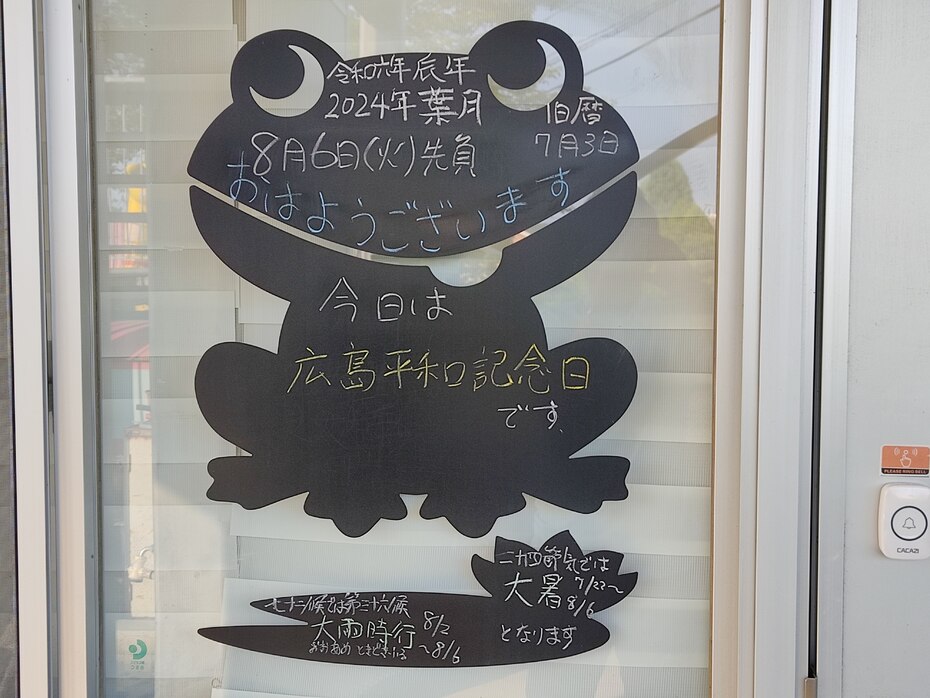 令和六年辰年
2024年葉月
旧暦
7月3日
8月6日(火)先負
おはようございます
今日は
広島平和記念日
です、
二十四節気では
大暑 7/22〜
8/6
となります
七十二候では第三十六候
大雨時行 8/2
〜8/6
おおあめ ときどきふる
PLEASE RING BELL
CACAZI